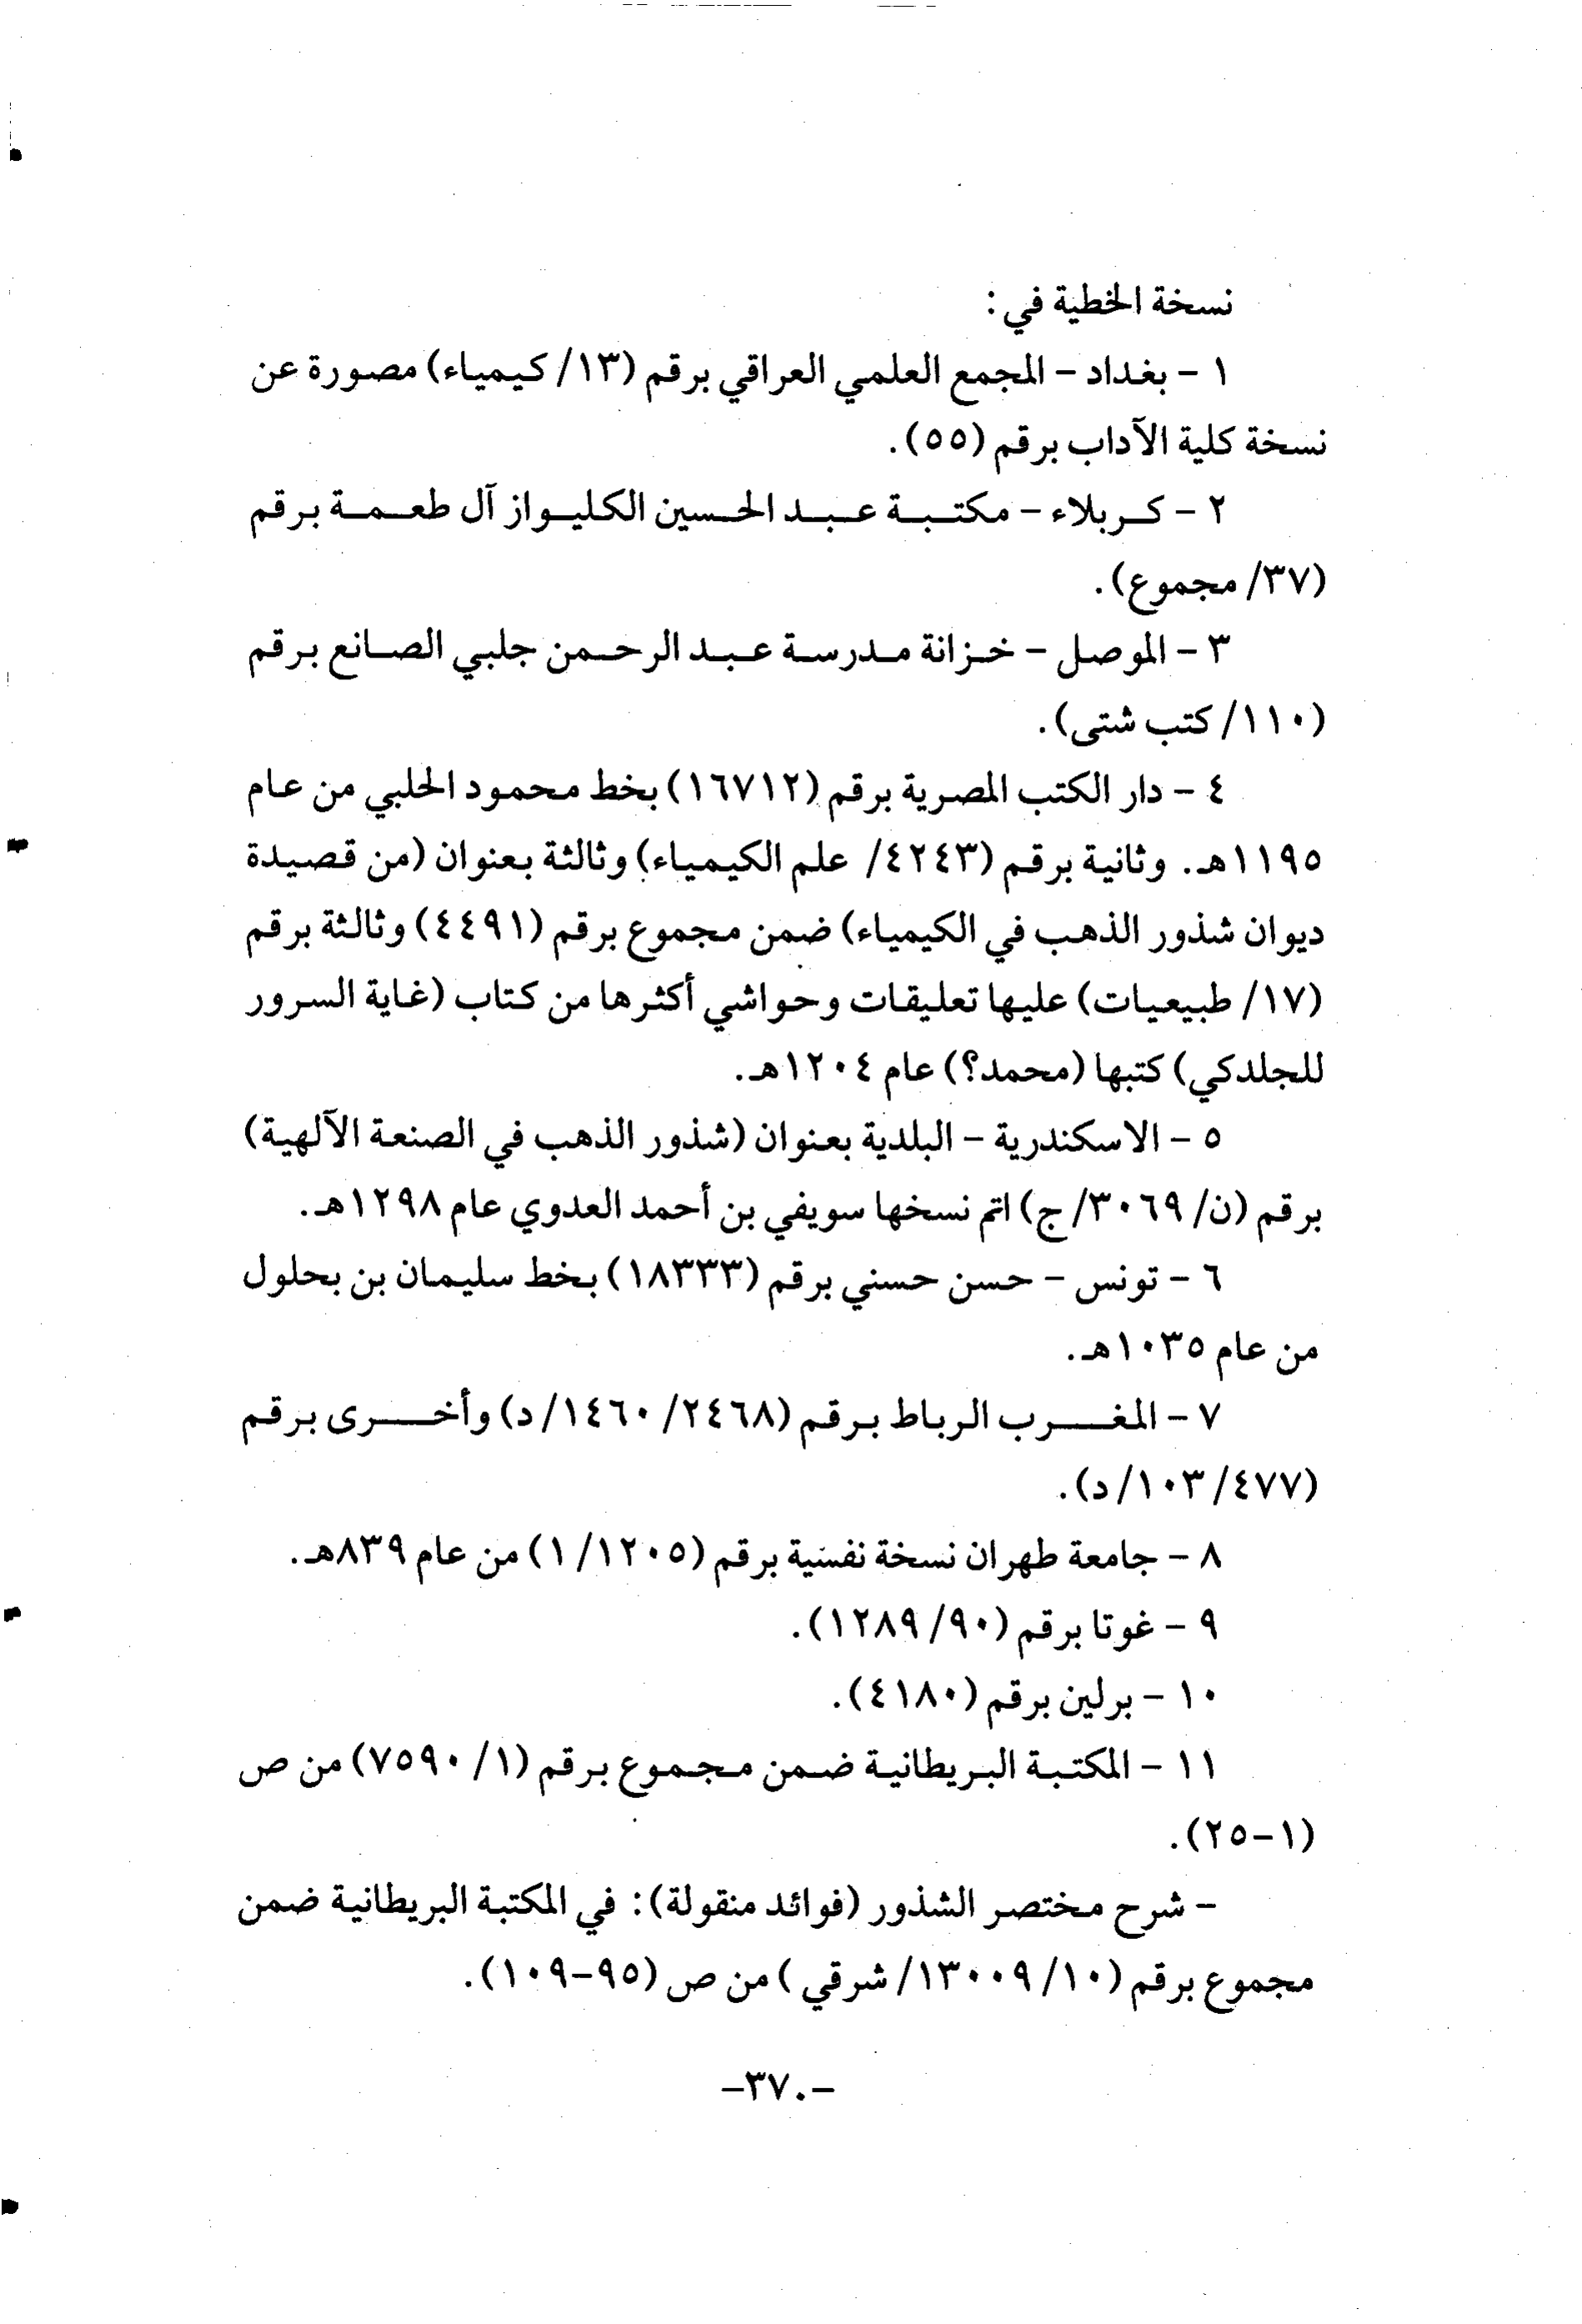 نسخة الخطية في :
١ - بغداد - المجمع العلمي العراقي برقم (١٣/ كيمياء) مصورة عن
نسخة كلية الآداب برقم (٥٥).
٢ - كربلاء - مكتبة عبد الحسين الكليواز آل طعمة برقم
(٣٧/ مجموع).
٣ - الموصل - خزانة مدرسة عبد الرحمن جلبي الصانع برقم
(١١٠/ كتب شتى).
٤ - دار الكتب المصرية برقم (١٦٧١٢) بخط محمود الحلبي من عام
١١٩٥هـ. وثانية برقم (٤٢٤٣/ علم الكيمياء) وثالثة بعنوان (من قصيدة
ديوان شذور الذهب في الكيمياء) ضمن مجموع برقم (٤٤٩١) وثالثة برقم
(١٧/ طبيعيات) عليها تعليقات وحواشي أكثرها من كتاب (غاية السرور
للجلدكي) كتبها (محمد؟) عام ١٢٠٤هـ.
٥ - الاسكندرية - البلدية بعنوان (شذور الذهب في الصنعة الآلهية)
برقم (ن/ ٣٠٦٩/ ج) اتم نسخها سويفي بن أحمد العدوي عام ١٢٩٨هـ.
٦ - تونس - حسن حسني برقم (١٨٣٣٣) بخط سليمان بن بحلول
من عام ١٠٣٥هـ.
٧ - المغرب الرباط برقم (٢٤٦٨/ ١٤٦٠/د) وأخرى برقم
(٤٧٧/ ١٠٣/د).
٨ - جامعة طهران نسخة نفسية برقم (١٢٠٥/ ١) من عام ٨٣٩هـ.
٩ - غوتا برقم (٩٠/ ١٢٨٩).
١٠ - برلين برقم (٤١٨٠).
١١ - المكتبة البريطانية ضمن مجموع برقم (١/ ٧٥٩٠) من ص
(١-٢٥).
- شرح مختصر الشذور (فوائد منقولة): في المكتبة البريطانية ضمن
مجموع برقم (١٠/ ١٣٠٠٩/ شرقي ) من ص (٩٥-١٠٩).
-٣٧٠-